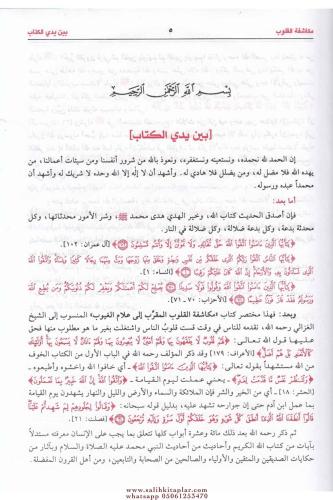 مكاشفة القلوب ٥ بين يدي الكتاب
بسم الله الرحمن الرحيم
[بين يدي الكتاب]
إن الحمد لله نحمده، ونستعينه ونستغفره، ونعوذ بالله من شرور أنفسنا ومن سيئات أعمالنا، من
يهده الله فلا مضل له، ومن يضلل فلا هادي له. وأشهد أن لا إله إلا الله وحده لا شريك له وأشهد أن
محمداً عبده ورسوله.
أما بعد:
فإن أصدق الحديث كتاب الله، وخير الهدي هدى محمد ﷺ، وشر الأمور محدثاتها، وكل
محدثة بدعة، وكل بدعة ضلالة، وكل ضلالة في النار.
﴿يَاأَيُّهَا الَّذِينَ ءَامَنُوا اتَّقُوا اللَّهَ حَقَّ تُقَاتِهِ وَلَا تَمُوتُنَّ إِلَّا وَأَنْتُمْ مُسْلِمُونَ﴾ [آل عمران: ١٠٢].
﴿يَاأَيُّهَا النَّاسُ اتَّقُوا رَبَّكُمُ الَّذِي خَلَقَكُمْ مِنْ نَفْسٍ وَاحِدَةٍ وَخَلَقَ مِنْهَا زَوْجَهَا وَبَثَّ مِنْهُمَا رِجَالًا كَثِيرًا وَنِسَاءً وَاتَّقُوا اللَّهَ
الَّذِي تَسَاءَلُونَ بِهِ وَالْأَرْحَامَ إِنَّ اللَّهَ كَانَ عَلَيْكُمْ رَقِيبًا﴾ [النساء: ١].
﴿يَاأَيُّهَا الَّذِينَ ءَامَنُوا اتَّقُوا اللَّهَ وَقُولُوا قَوْلًا سَدِيدًا يُصْلِحْ لَكُمْ أَعْمَالَكُمْ وَيَغْفِرْ لَكُمْ ذُنُوبَكُمْ وَمَنْ يُطِعِ اللَّهَ
وَرَسُولَهُ فَقَدْ فَازَ فَوْزًا عَظِيمًا﴾ [الأحزاب: ٧٠ - ٧١].
وبعد: فهذا مختصر كتاب «مكاشفة القلوب المقرّب إلى علام الغيوب» المنسوب إلى الشيخ
الغزالي رحمه الله، نقدمه للناس في وقت قست قلوب الناس واشتغلت بغير ما هو مطلوب منها فحق
عليها قول الله تعالى: ﴿لَهُمْ قُلُوبٌ لَا يَفْقَهُونَ بِهَا وَلَهُمْ أَعْيُنٌ لَا يُبْصِرُونَ بِهَا وَلَهُمْ ءَاذَانٌ لَا يَسْمَعُونَ بِهَا أُولَئِكَ
كَالْأَنْعَامِ بَلْ هُمْ أَضَلُّ﴾ [الأعراف: ١٧٩] وقد ذكر المؤلف رحمه الله في الباب الأول من الكتاب الخوف
من الله مستشهداً بقوله تعالى: ﴿يَاأَيُّهَا الَّذِينَ ءَامَنُوا اتَّقُوا اللَّهَ﴾ - أي خافوا الله واخشوه وأطيعوه -
﴿وَلْتَنْظُرْ نَفْسٌ مَا قَدَّمَتْ لِغَدٍ﴾ - يعني عملت ليوم القيامة - ﴿وَاتَّقُوا اللَّهَ إِنَّ اللَّهَ خَبِيرٌ بِمَا تَعْمَلُونَ﴾
[الحشر: ١٨] - أي من الخير والشر فإن الملائكة والسماء والأرض والليل والنهار يشهدون يوم القيامة
بما عمل ابن آدم حتى إن جوارحه تشهد عليه، بدليل قوله سبحانه: ﴿وَقَالُوا لِجُلُودِهِمْ لِمَ شَهِدْتُمْ عَلَيْنَا
[فصلت: ٢١].
ثم ذكر رحمه الله بعد ذلك مائة وعشرة أبواب كلها تتعلق بما يجب على الإنسان معرفته مستدلاً
بآيات من كتاب الله الكريم وأحاديث من أحاديث النبي محمد عليه الصلاة والسلام وبآثار من
حكايات الصديقين والمتقين والأولياء والصالحين من الصحابة والتابعين، من أهل القرون المفضلة.
www.salihkitaplar.com
whatsapp 05061253470